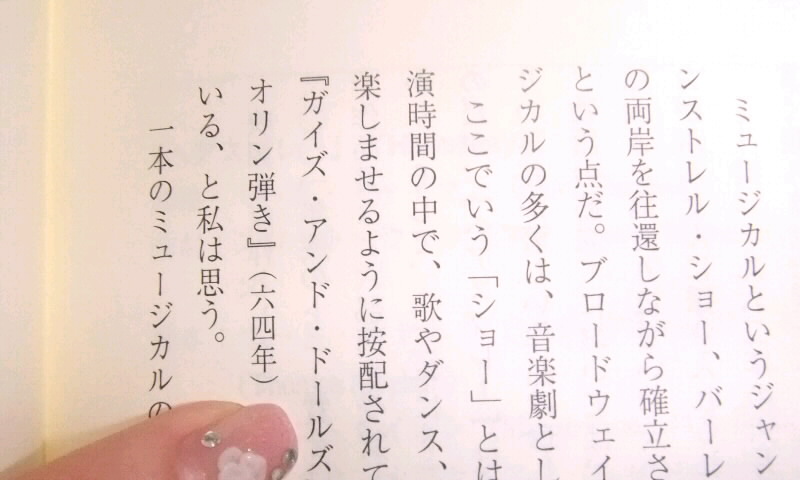 ミュージカルというジャン
ンストレル・ショー、バーレ
の両岸を往還しながら確立さ
という点だ。ブロードウェイ
ジカルの多くは、音楽劇とし
ここでいう「ショー」とは
演時間の中で、歌やダンス、
楽しませるように按配されて
『ガイズ・アンド・ドールズ
オリン弾き』（六四年）
いる、と私は思う。
一本のミュージカルの